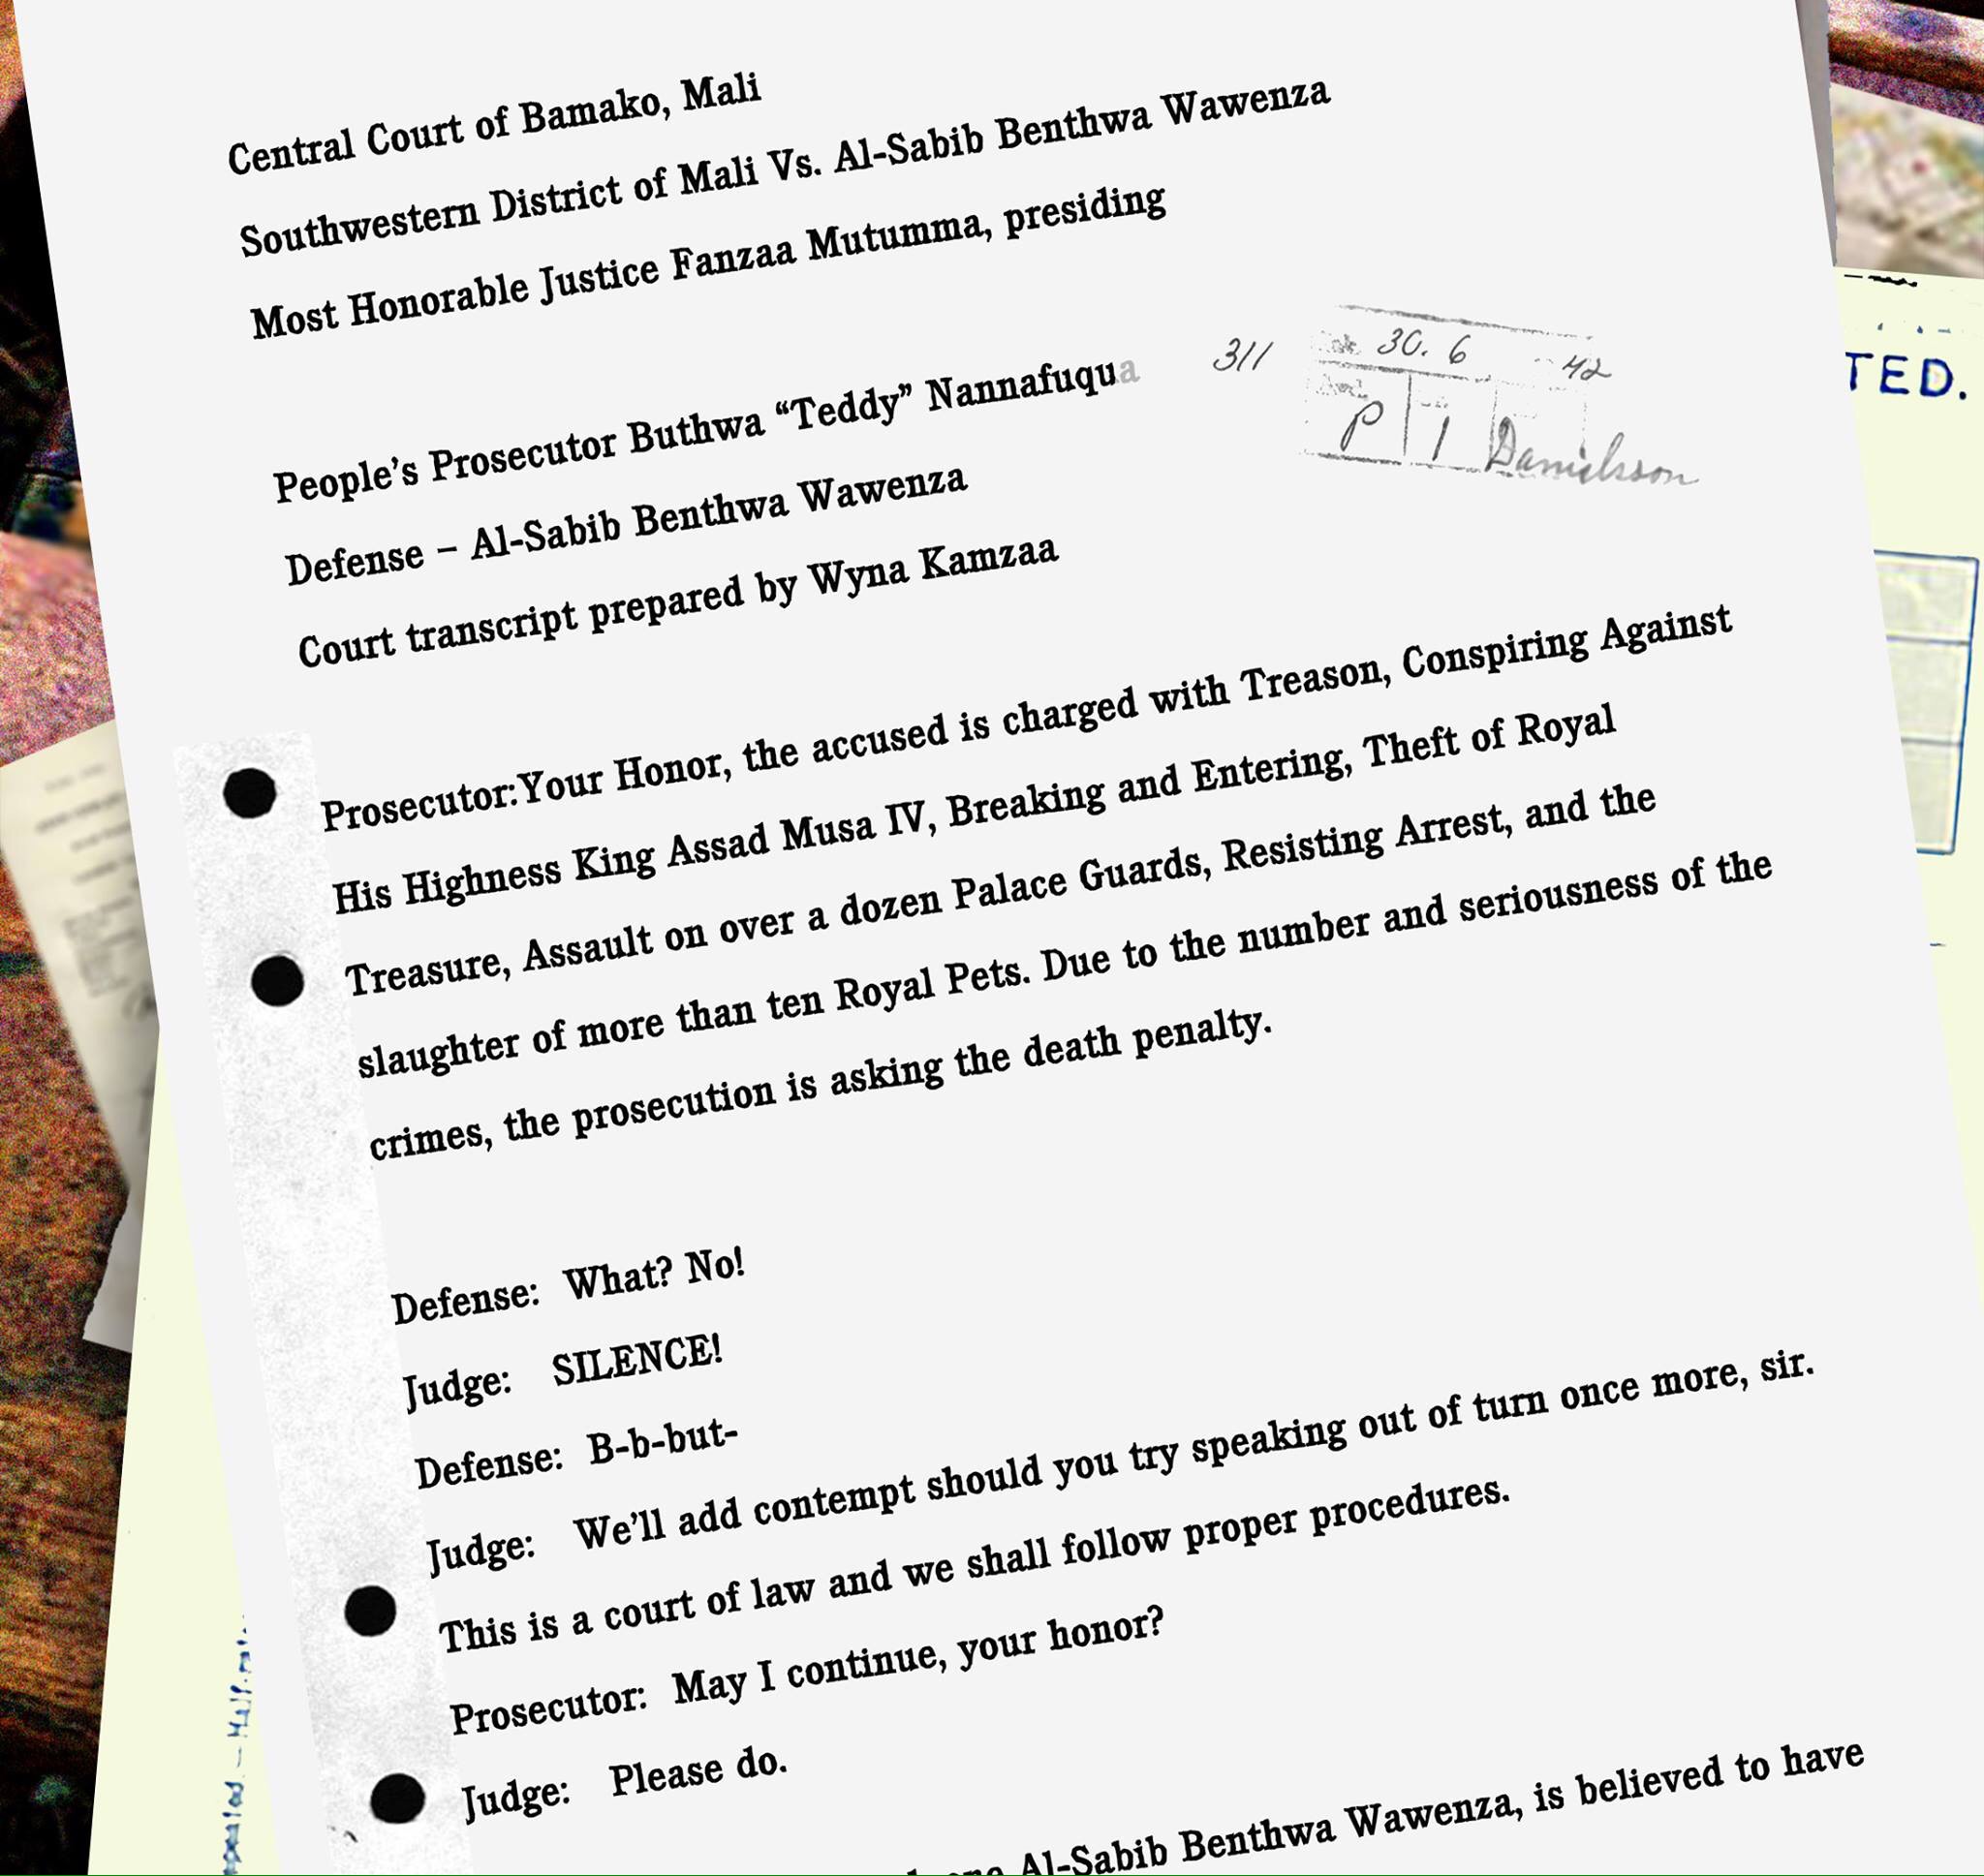 Central Court of Bamako, Mali
Southwestern District of Mali Vs. Al-Sabib Benthwa Wawenza
Most Honorable Justice Fanzaa Mutumma, presiding
People’s Prosecutor Buthwa “Teddy” Nannafuqua
311
30. 6 42
P 1 Danielsson
TED.
Defense – Al-Sabib Benthwa Wawenza
Court transcript prepared by Wyna Kamzaa
Prosecutor:Your Honor, the accused is charged with Treason, Conspiring Against
His Highness King Assad Musa IV, Breaking and Entering, Theft of Royal
Treasure, Assault on over a dozen Palace Guards, Resisting Arrest, and the
slaughter of more than ten Royal Pets. Due to the number and seriousness of the
crimes, the prosecution is asking the death penalty.
Defense: What? No!
Judge: SILENCE!
Defense: B-b-but-
Judge: We’ll add contempt should you try speaking out of turn once more, sir.
This is a court of law and we shall follow proper procedures.
Prosecutor: May I continue, your honor?
Judge: Please do.
Al-Sabib Benthwa Wawenza, is believed to have